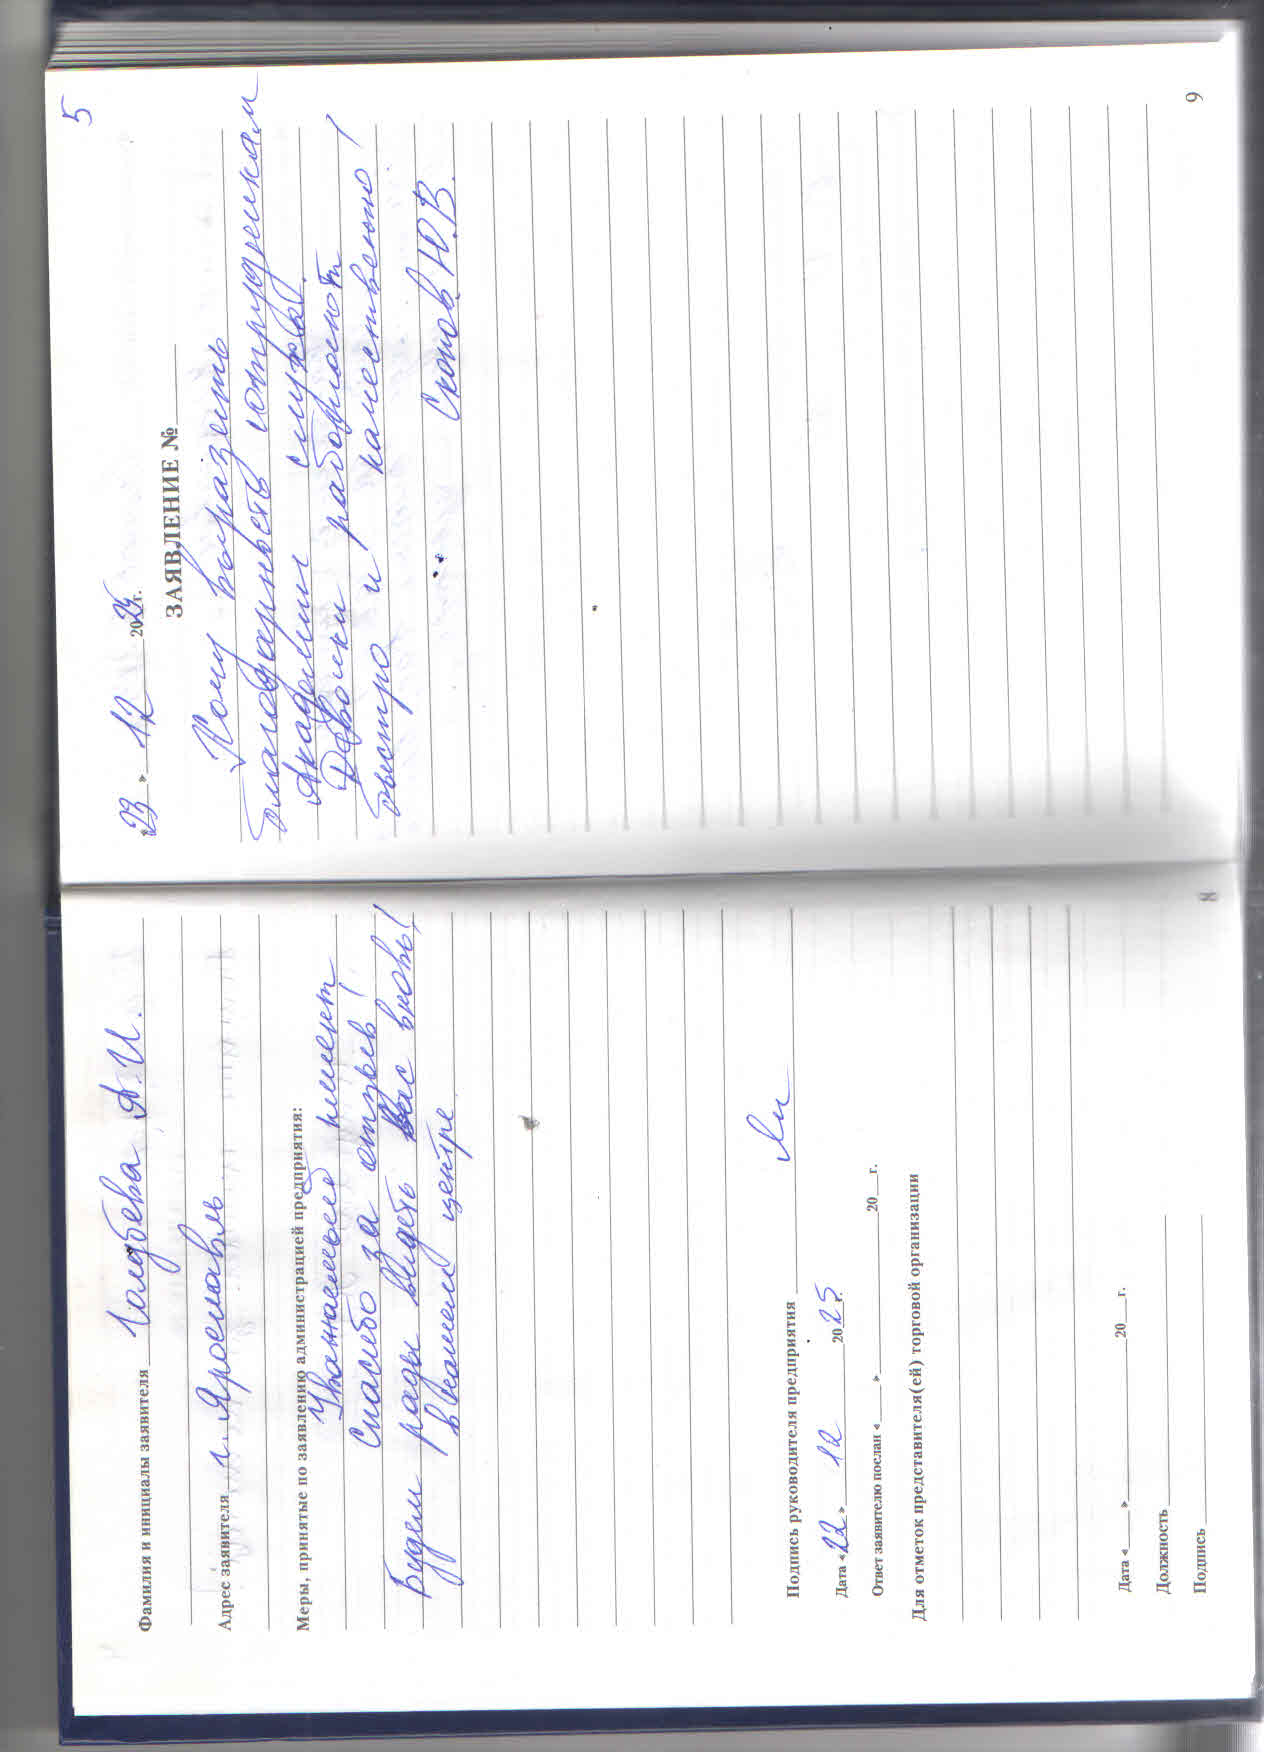 Фамилия и инициалы заявителя Голубева А.И.
Адрес заявителя г. Ярославль
Меры, принятые по заявлению администрацией предприятия:
Уважаемый клиент
Спасибо за отзыв!
Будем рады видеть Вас вновь!
в нашем центре
Подпись руководителя предприятия
Дата «22» 12 2025г.
Ответ заявителю послан «___»___20__г.
Для отметок представителя(ей) торговой организации
Дата «___»___20__г.
Должность
Подпись
8
5
«23» 12 2025г.
ЗАЯВЛЕНИЕ №
Хочу выразить
благодарность сотрудникам
Академии службы.
Девочки работают
быстро и качественно!
Ю.В.
9